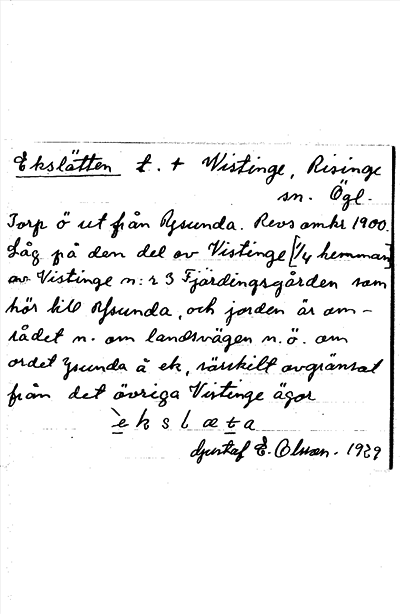 Ekslätten t. + Wistinge, Risinge
sn. Ögl.
Torp ö ut från Ysunda. Revs omkr 1900.
Låg på den del av Vistinge [1/4 hemman]
av Vistinge n:r 3 Fjärdingsgården som
hör till Ysunda, och jorden är om-
rådet n. om landsvägen n.ö. om
ordet Ysunda å ek, särskilt avgränsat
från det övriga Vistinge ägor
èkslæta
Gustaf E. Olsson. 1929